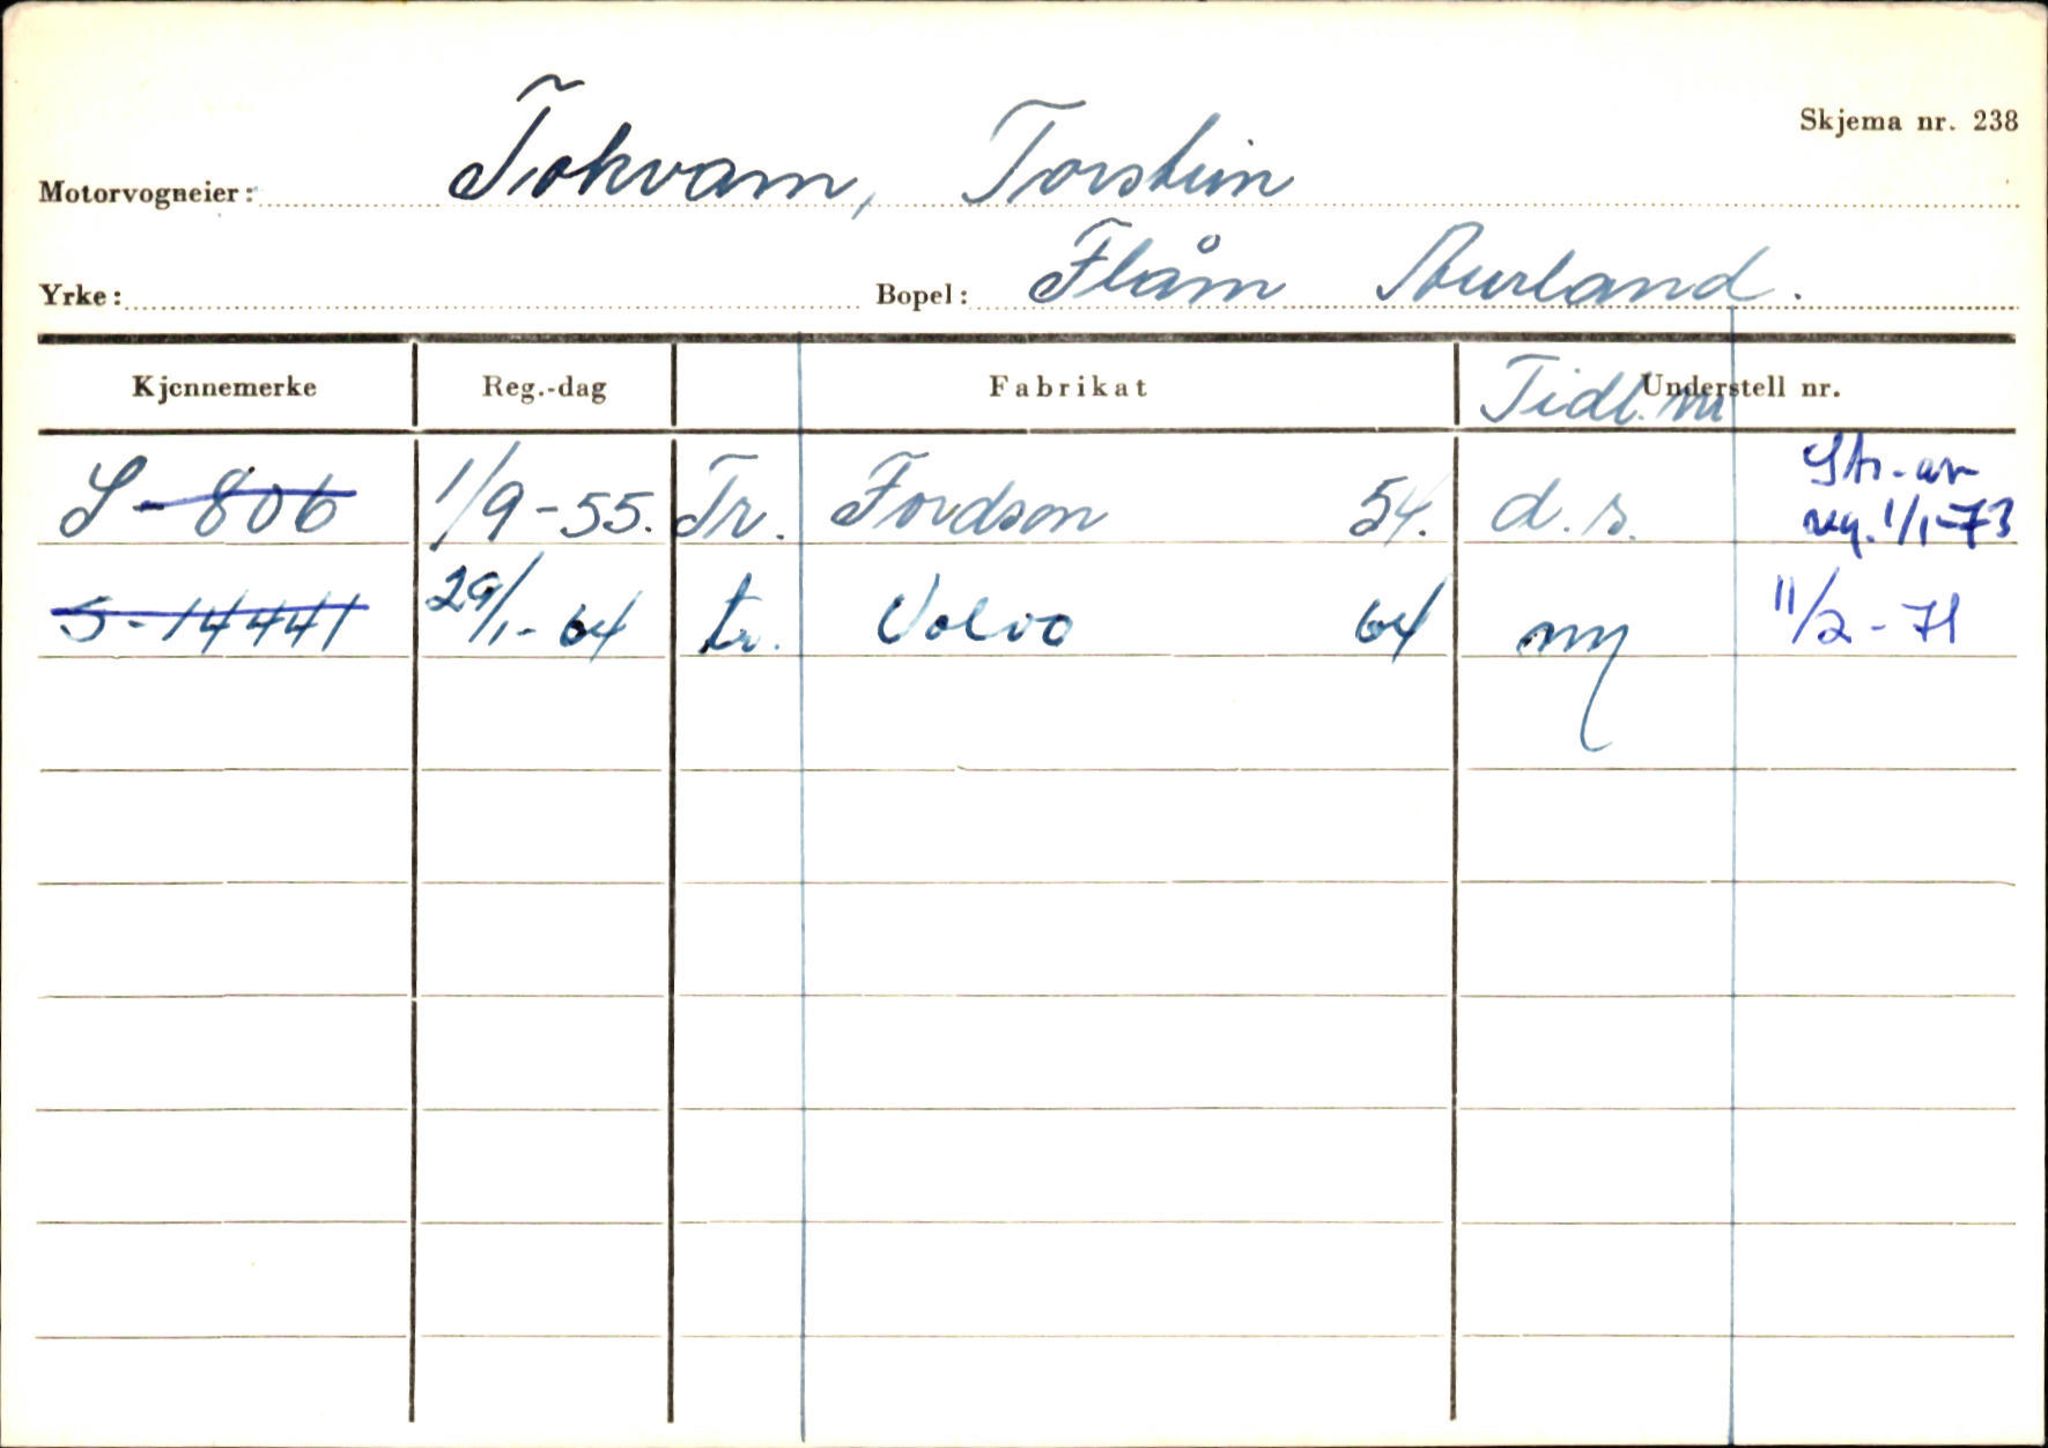 Skjema nr. 238
Motorvogneier: Tokvam, Torstein
Yrke: Bopel: Flåm Aurland.
Kjennemerke Reg.-dag Fabrikat Tidl. nr Understell nr.
S-806 1/9-55. Tr. Fordson 54. d.s. Str. av reg. 1/1-73
S-14441 29/1-64 tr. Volvo 64 ny 11/2-71